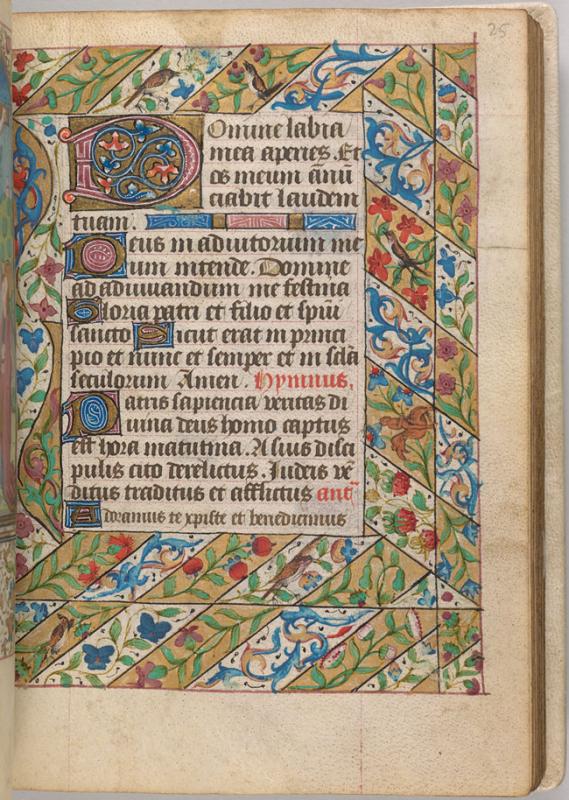 25
Domine labia
mea aperies. Et
os meum anũ
ciabit laudem
tuam.
Deus in adiutorium me
um intende. Domine
ad adiuuandum me festina
Gloria patri et filio et spũi
sancto Sicut erat in princi
pio et nunc et semper et in sclã
seculorum Amen. Hymnus.
Patris sapiencia veritas di
uina deus homo captus
est hora matutina. A suis disci
pulis cito derelictus. Iudeis vẽ
ditus traditus et afflictus ant̃
Adoramus te xpiste et benedicimus